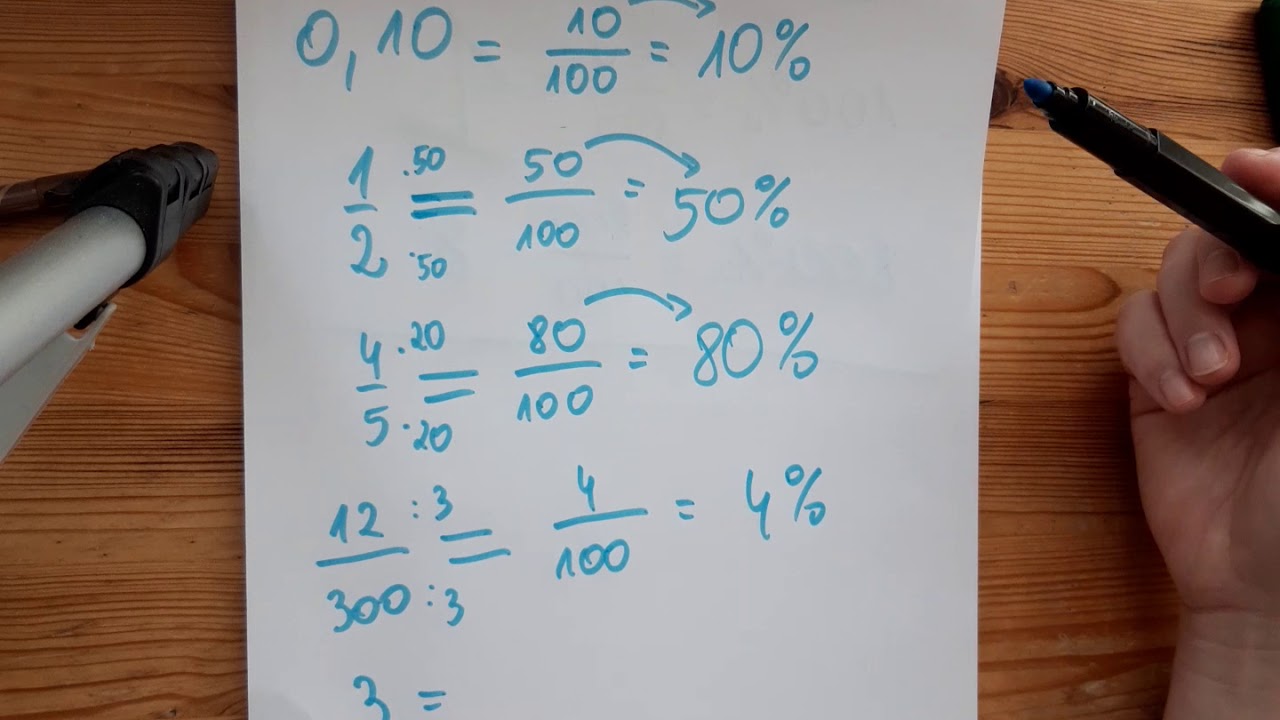 0,10 = 10/100 = 10%
1/2 ·50 ·50 = 50/100 = 50%
4/5 ·20 ·20 = 80/100 = 80%
12/300 :3 :3 = 4/100 = 4%
3 =